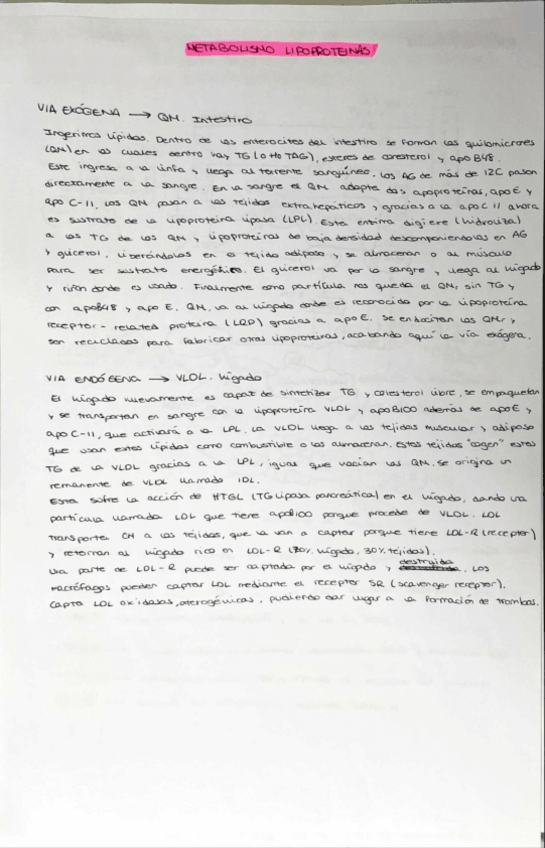 METABOLISMO LIPOPROTEINAS
VIA EXÓGENA → QM. Intestino
Ingerimos lípidos. Dentro de los enterocitos del intestino se forman los quilomicrones
(QM) en los cuales dentro hay TG (o Ho TAG), esteres de colesterol y apo B48.
Este ingresa a la linfa y llega al torrente sanguíneo, los AG de más de 12C pasan
directamente a la sangre. En la sangre el QM adapta dos apoproteínas, apo E y
apo C-II. Los QM pasan a los tejidos extrahepáticos y gracias a la apo C II ahora
es sustrato de la lipoproteína lipasa (LPL). Esta enzima digiere (hidroliza)
a los TG de los QM y lipoproteínas de baja densidad descomponiendolas en AG
y glicerol, liberándolas en el tejido adiposo y se almaceran o al músculo
para ser sustrato energético. El glicerol va por la sangre y llega al hígado
y riñon donde es usado. Finalmente como partícula nos queda el QMr sin TG y
con apoB48 y apo E. QMr va al hígado donde es reconocido por la lipoproteína
receptor-related proteina (LRP) gracias a apo E. Se endocitan los QMr y
son reciclados para fabricar otras lipoproteínas, acabando aquí la vía exógena.
VIA ENDÓGENA → VLDL. Hígado
El hígado nuevamente es capaz de sintetizar TG y colesterol libre, se empaquetan
y se transportan en sangre con la lipoproteína VLDL y apoB100 además de apo E y
apo C-II, que activará a la LPL. La VLDL llega a los tejidos muscular y adiposo
que usan estos lípidos como combustible o los almaceran. Estos tejidos "cogen" estos
TG de la VLDL gracias a la LPL, igual que vacían los QM. Se origina un
remanente de VLDL llamado IDL.
Esta sufre la acción de HTGL (TG lipasa pancreática) en el hígado, dando una
partícula llamada LDL que tiene apoB100 porque procede de VLDL. LDL
transporta CH a los tejidos, que la van a captar porque tiene LDL-R (receptor)
y retornan al hígado rico en LDL-R (70% hígado, 30% tejidos).
Una parte de LDL-R puede ser captada por el hígado y destruida. Los
macrófagos pueden captar LDL mediante el receptor SR (scavenger receptor).
Capta LDL oxidadas, aterogénicas, pudiendo dar lugar a la formación de trombos.